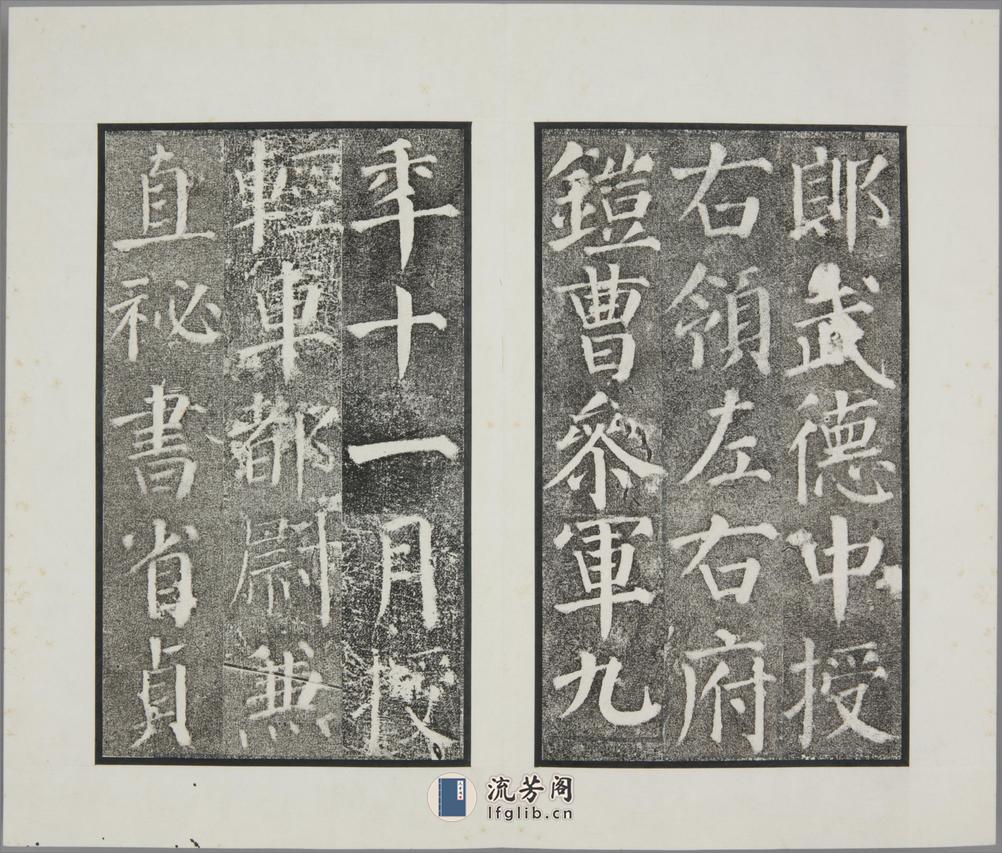 郎武德中授
右領左右府
鎧曹叅軍九
年十一月授
輕車都尉兼
直祕書省貞
流芳阁
lfglib.cn